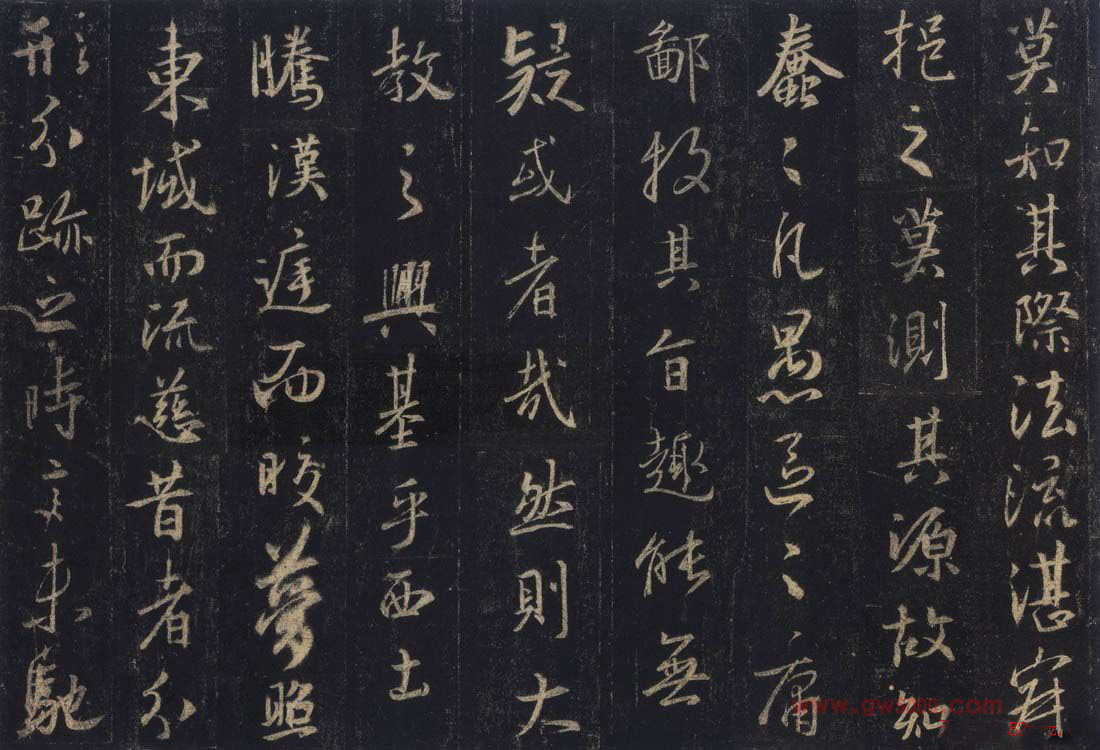 莫知其際法流湛寂
挹之莫測其源故知
蠢〻凡愚區〻庸
鄙投其旨趣能無
疑或者哉然則大
教之興基乎西土
騰漢遅而皎夢照
東域而流慈昔者分
形分跡之時言未馳
www.gw